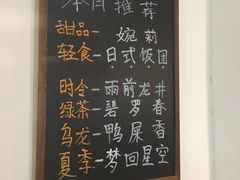 本月推荐
甜品— 婉莉
轻食—日式饭团
时令—雨前龙井
绿茶—碧罗春
乌龙—鸭屎香
夏季—梦回星空